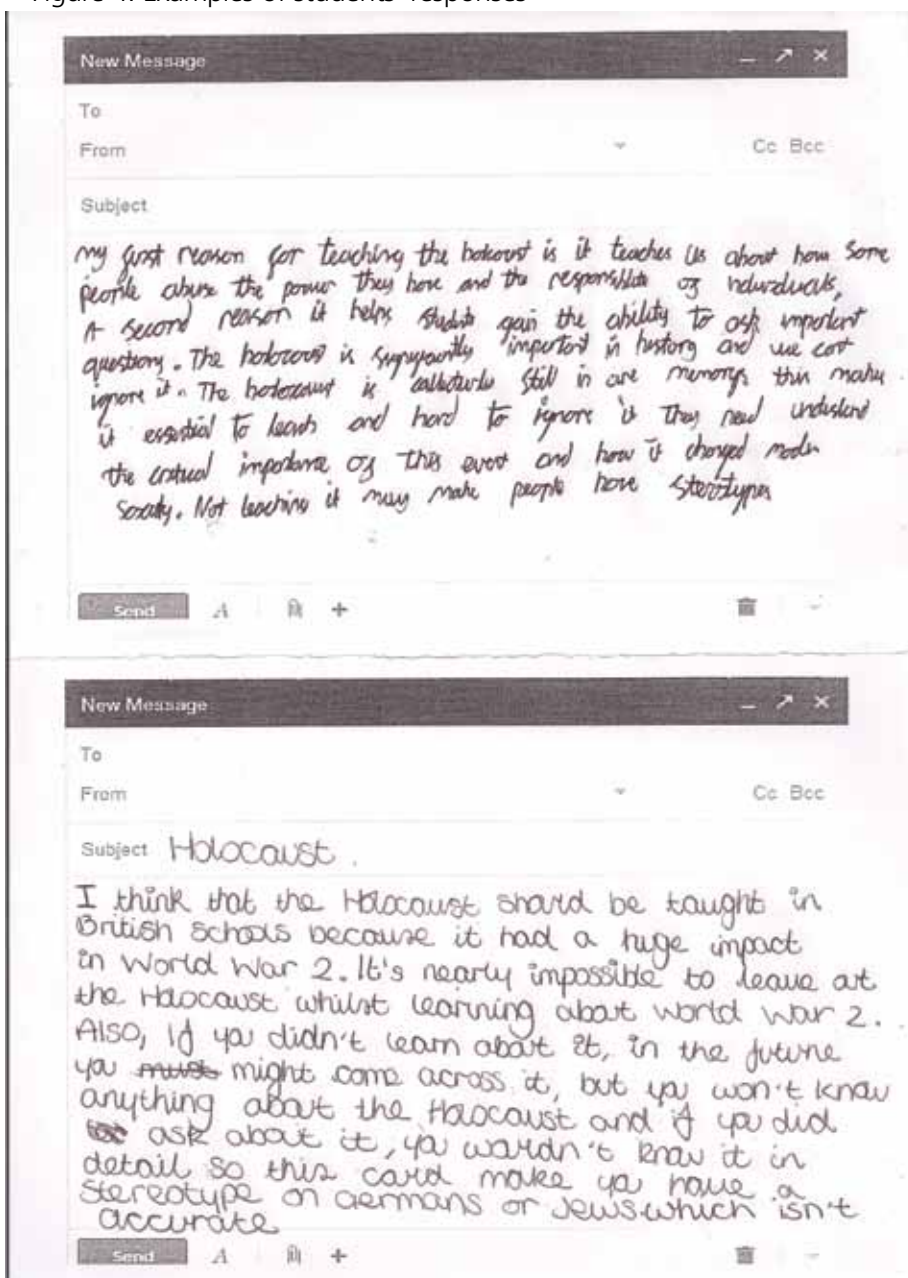 Figure 4: Examples of students' responses
New Message
To
From
Cc Bcc
Subject
my first reason for teaching the is it teaches us about how some
people abuse the power they have and the of
A second reason it helps students gain the ability to ask important
questions. The is important in history and we
ignore it. The is still in are memorys this makes
it essential to learn and hard to ignore it They need understand
the importance of this event and how it changed
. Not teaching it may make people have
Send
New Message
To
From
Cc Bcc
Subject Holocaust.
I think that the Holocaust should be taught in
British schools because it had a huge impact
in World War 2. It's nearly impossible to leave out
the Holocaust whilst learning about world war 2.
Also, if you didn't learn about it, in the future
you must might come across it, but you won't know
anything about the Holocaust and if you did
ask about it, you wouldn't know it in
detail so this could make you have a
stereotype on Germans or Jews which isn't
accurate
Send